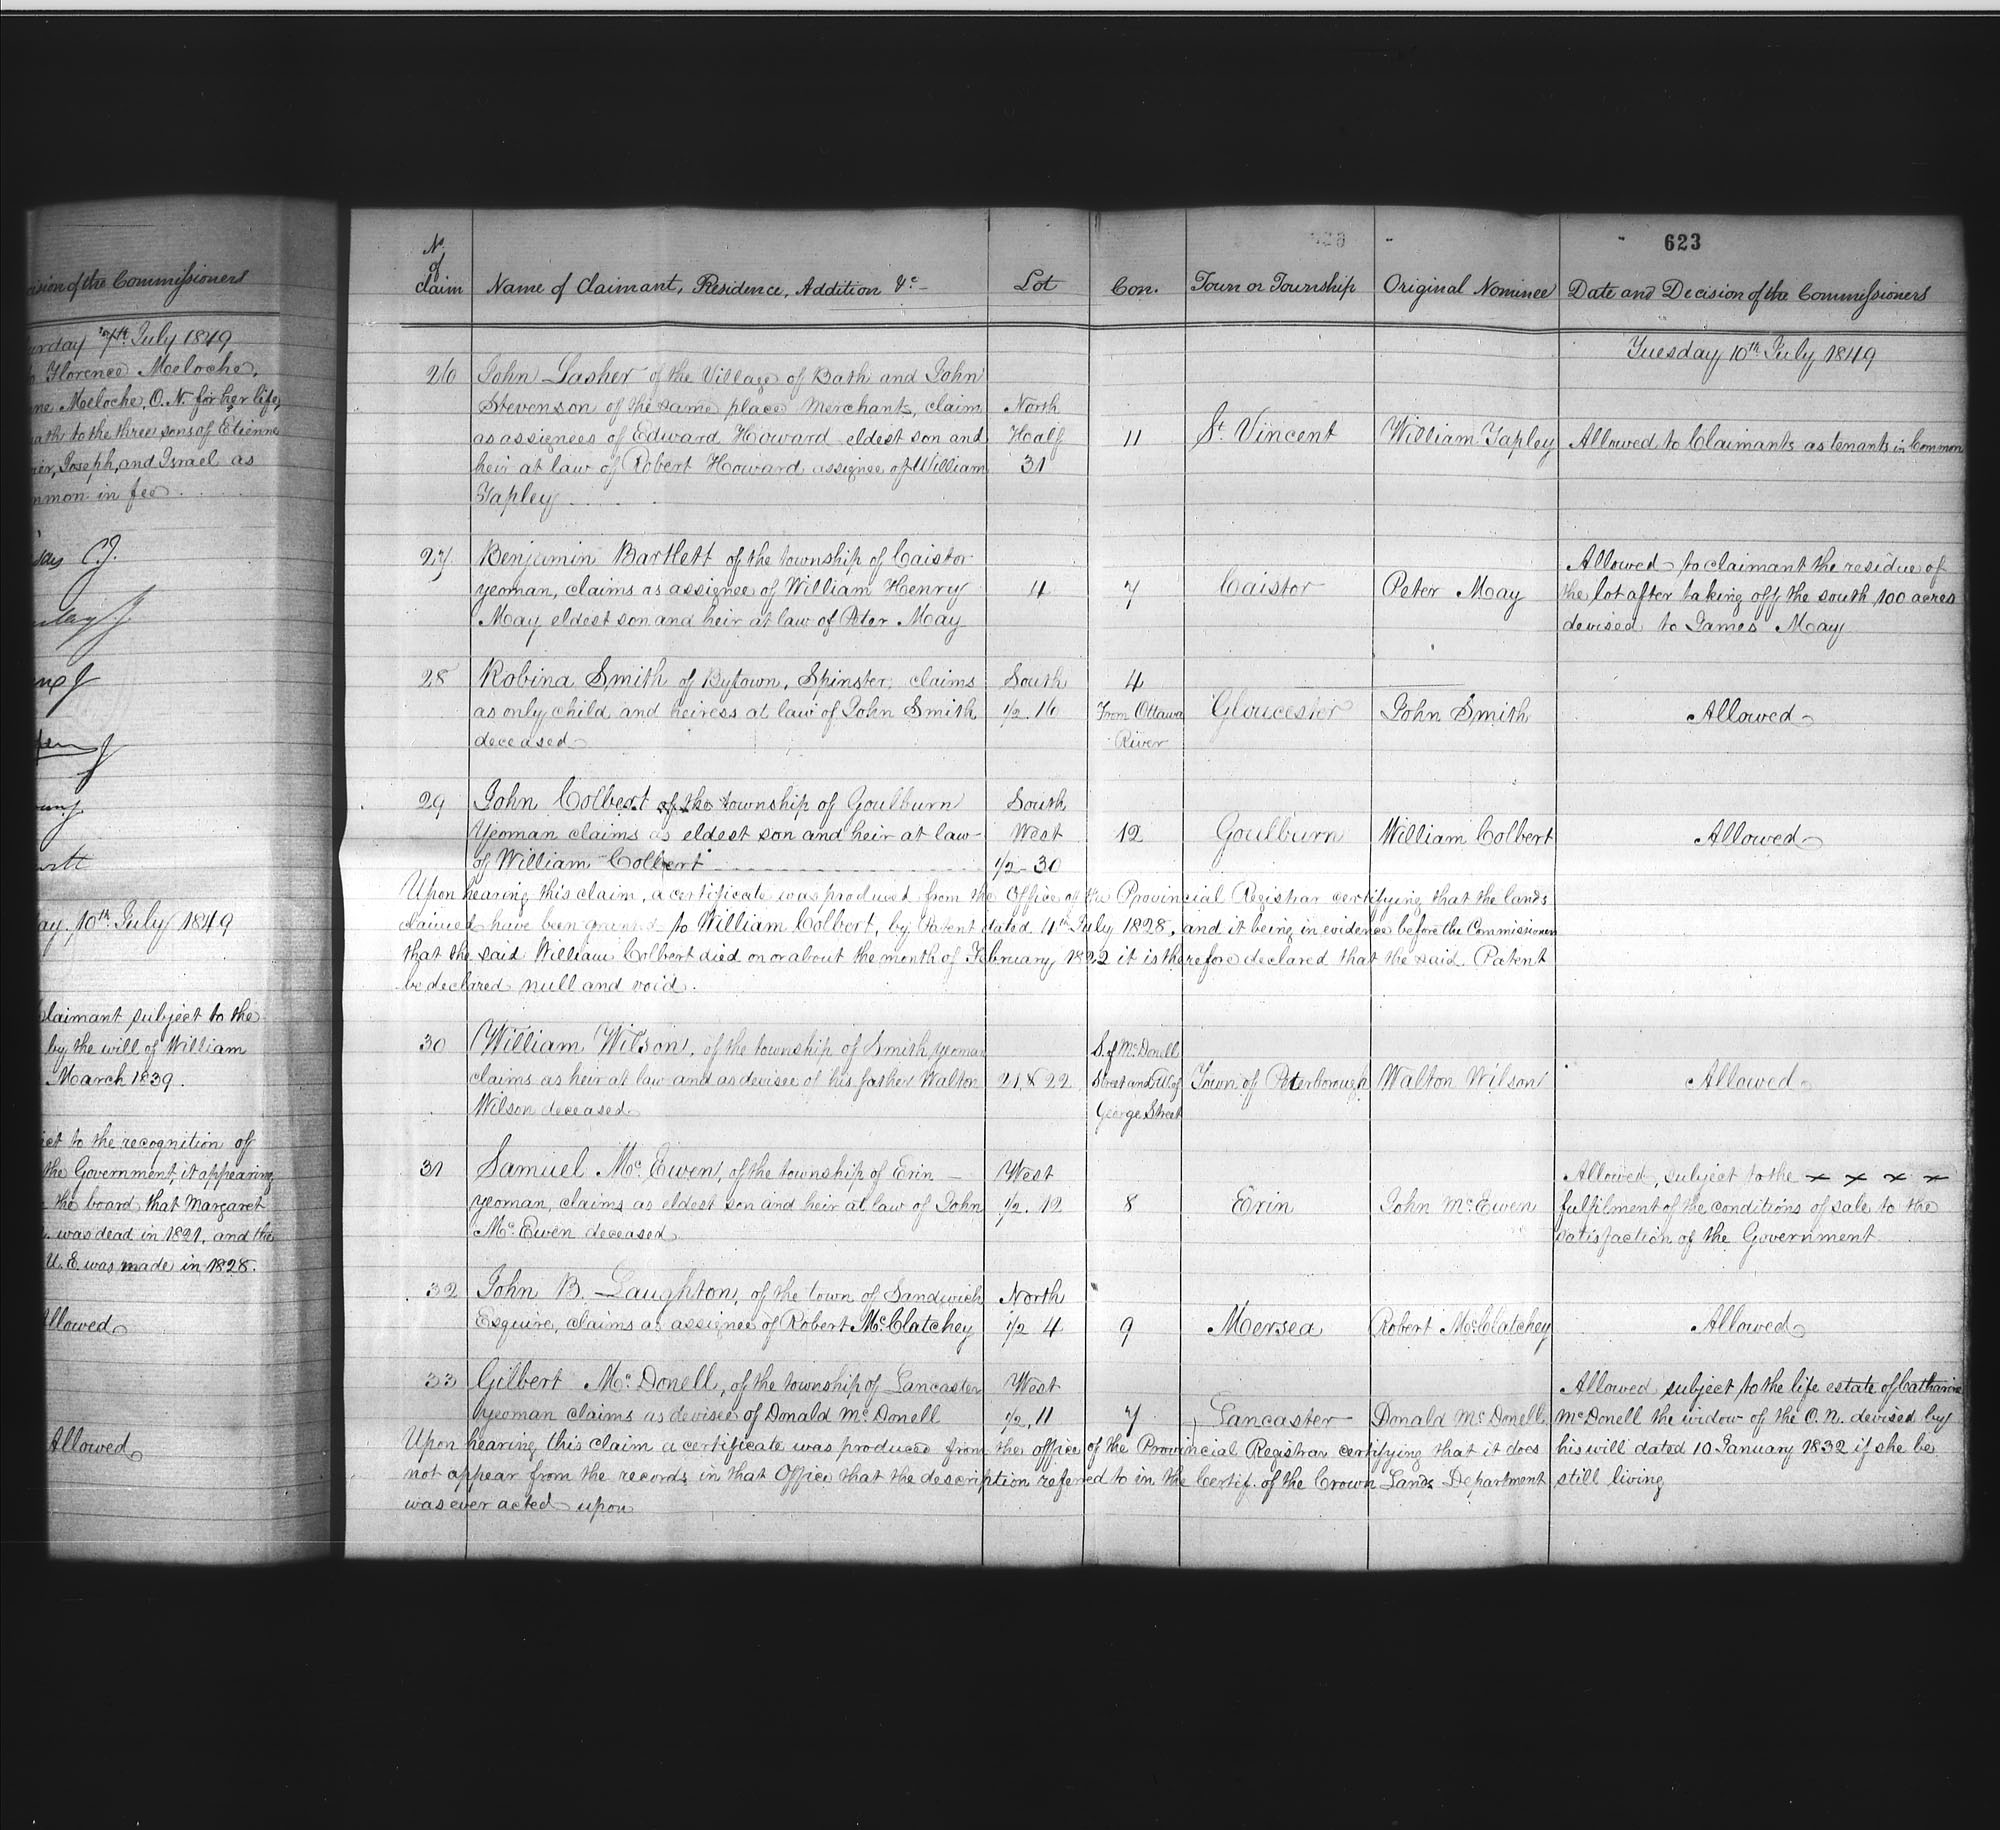 cision of the Commissioners
urday 7th July 1849
Florence Meloche,
ne Meloche, O.N. for her life,
ath to the three sons of Etienne
ier, Joseph, and Israel as
mmon in fee.
C.J.
J
J
J
ay, 10th July 1849
Claimant subject to the
by the will of William
March 1839.
ect to the recognition of
the Government, it appearing
the board that Margaret
was dead in 1821, and the
U.E. was made in 1828.
Allowed
Allowed
623
No
of
claim
Name of Claimant, Residence, Addition &c
Lot
Con.
Town or Township
Original Nominee
Date and Decision of the Commissioners
Tuesday 10th July, 1849
26
John Lasher of the Village of Bath and John
Stevenson of the same place Merchants, claim
as assignees of Edward Howard eldest son and
heir at law of Robert Howard assignee of William
Tapley
North
Half
31
11
St. Vincent
William Tapley
Allowed to Claimants as tenants in Common
27
Benjamin Bartlett of the township of Caistor
yeoman, claims as assignee of William Henry
May eldest son and heir at law of Peter May
4
7
Caistor
Peter May
Allowed to claimant the residue of
the lot after taking off the south 100 acres
devised to James May
28
Robina Smith of Bytown, Spinster, claims
as only child and heiress at law of John Smith
deceased
South
1/2 16
4
From Ottawa
River
Gloucester
John Smith
Allowed
29
John Colbert of the township of Goulburn
Yeoman claims as eldest son and heir at law
of William Colbert
South
West
1/2 30
12
Goulburn
William Colbert
Allowed
Upon hearing this claim, a certificate was produced from the Office of the Provincial Registrar certifying that the lands
claimed have been granted to William Colbert, by Patent dated 4th July 1828, and it being in evidence before the Commissioners
that the said William Colbert died on or about the month of February 1822 it is therefore declared that the said Patent
be declared null and void.
30
William Wilson, of the township of Smith yeoman
claims as heir at law and as devisee of his father Walton
Wilson deceased
21 & 22
S. of McDonell
Street and W. of
George Street
Town of Peterborough
Walton Wilson
Allowed
31
Samuel Mc. Ewen, of the township of Erin
yeoman, claims as eldest son and heir at law of John
Mc. Ewen deceased
West
1/2. 12
8
Erin
John McEwen
Allowed, subject to the x x x x
fulfilment of the conditions of sale to the
satisfaction of the Government
32
John B. Laughton, of the town of Sandwich
Esquire, claims as assignee of Robert McClatchey
North
1/2 4
9
Mersea
Robert McClatchey
Allowed
33
Gilbert Mc. Donell, of the township of Lancaster
yeoman claims as devisee of Donald Mc Donell
West
1/2, 11
7
Lancaster
Donald McDonell
Allowed subject to the life estate of Catharine
McDonell the widow of the O.N. devised by
his will dated 10 January 1832 if she be
still living
Upon hearing this claim a certificate was produced from the office of the Provincial Registrar certifying that it does
not appear from the records in that Office that the description referred to in the Certif. of the Crown Lands Department
was ever acted upon